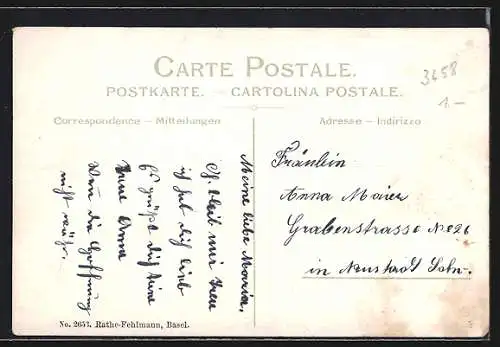 CARTE POSTALE.
POSTKARTE. – CARTOLINA POSTALE.
Correspondence – Mitteilungen
Adresse – Indirizzo
3658
1.–
Meine liebe Maria,
bleib mir treu
ich hab dich lieb
Es grüßt dich deine
Anna
Wenn die Hoffnung
nicht wäre.
Fräulein
Anna Maier
Grabenstrasse No 26
in Neustadt
No. 2653. Rathe-Fehlmann, Basel.